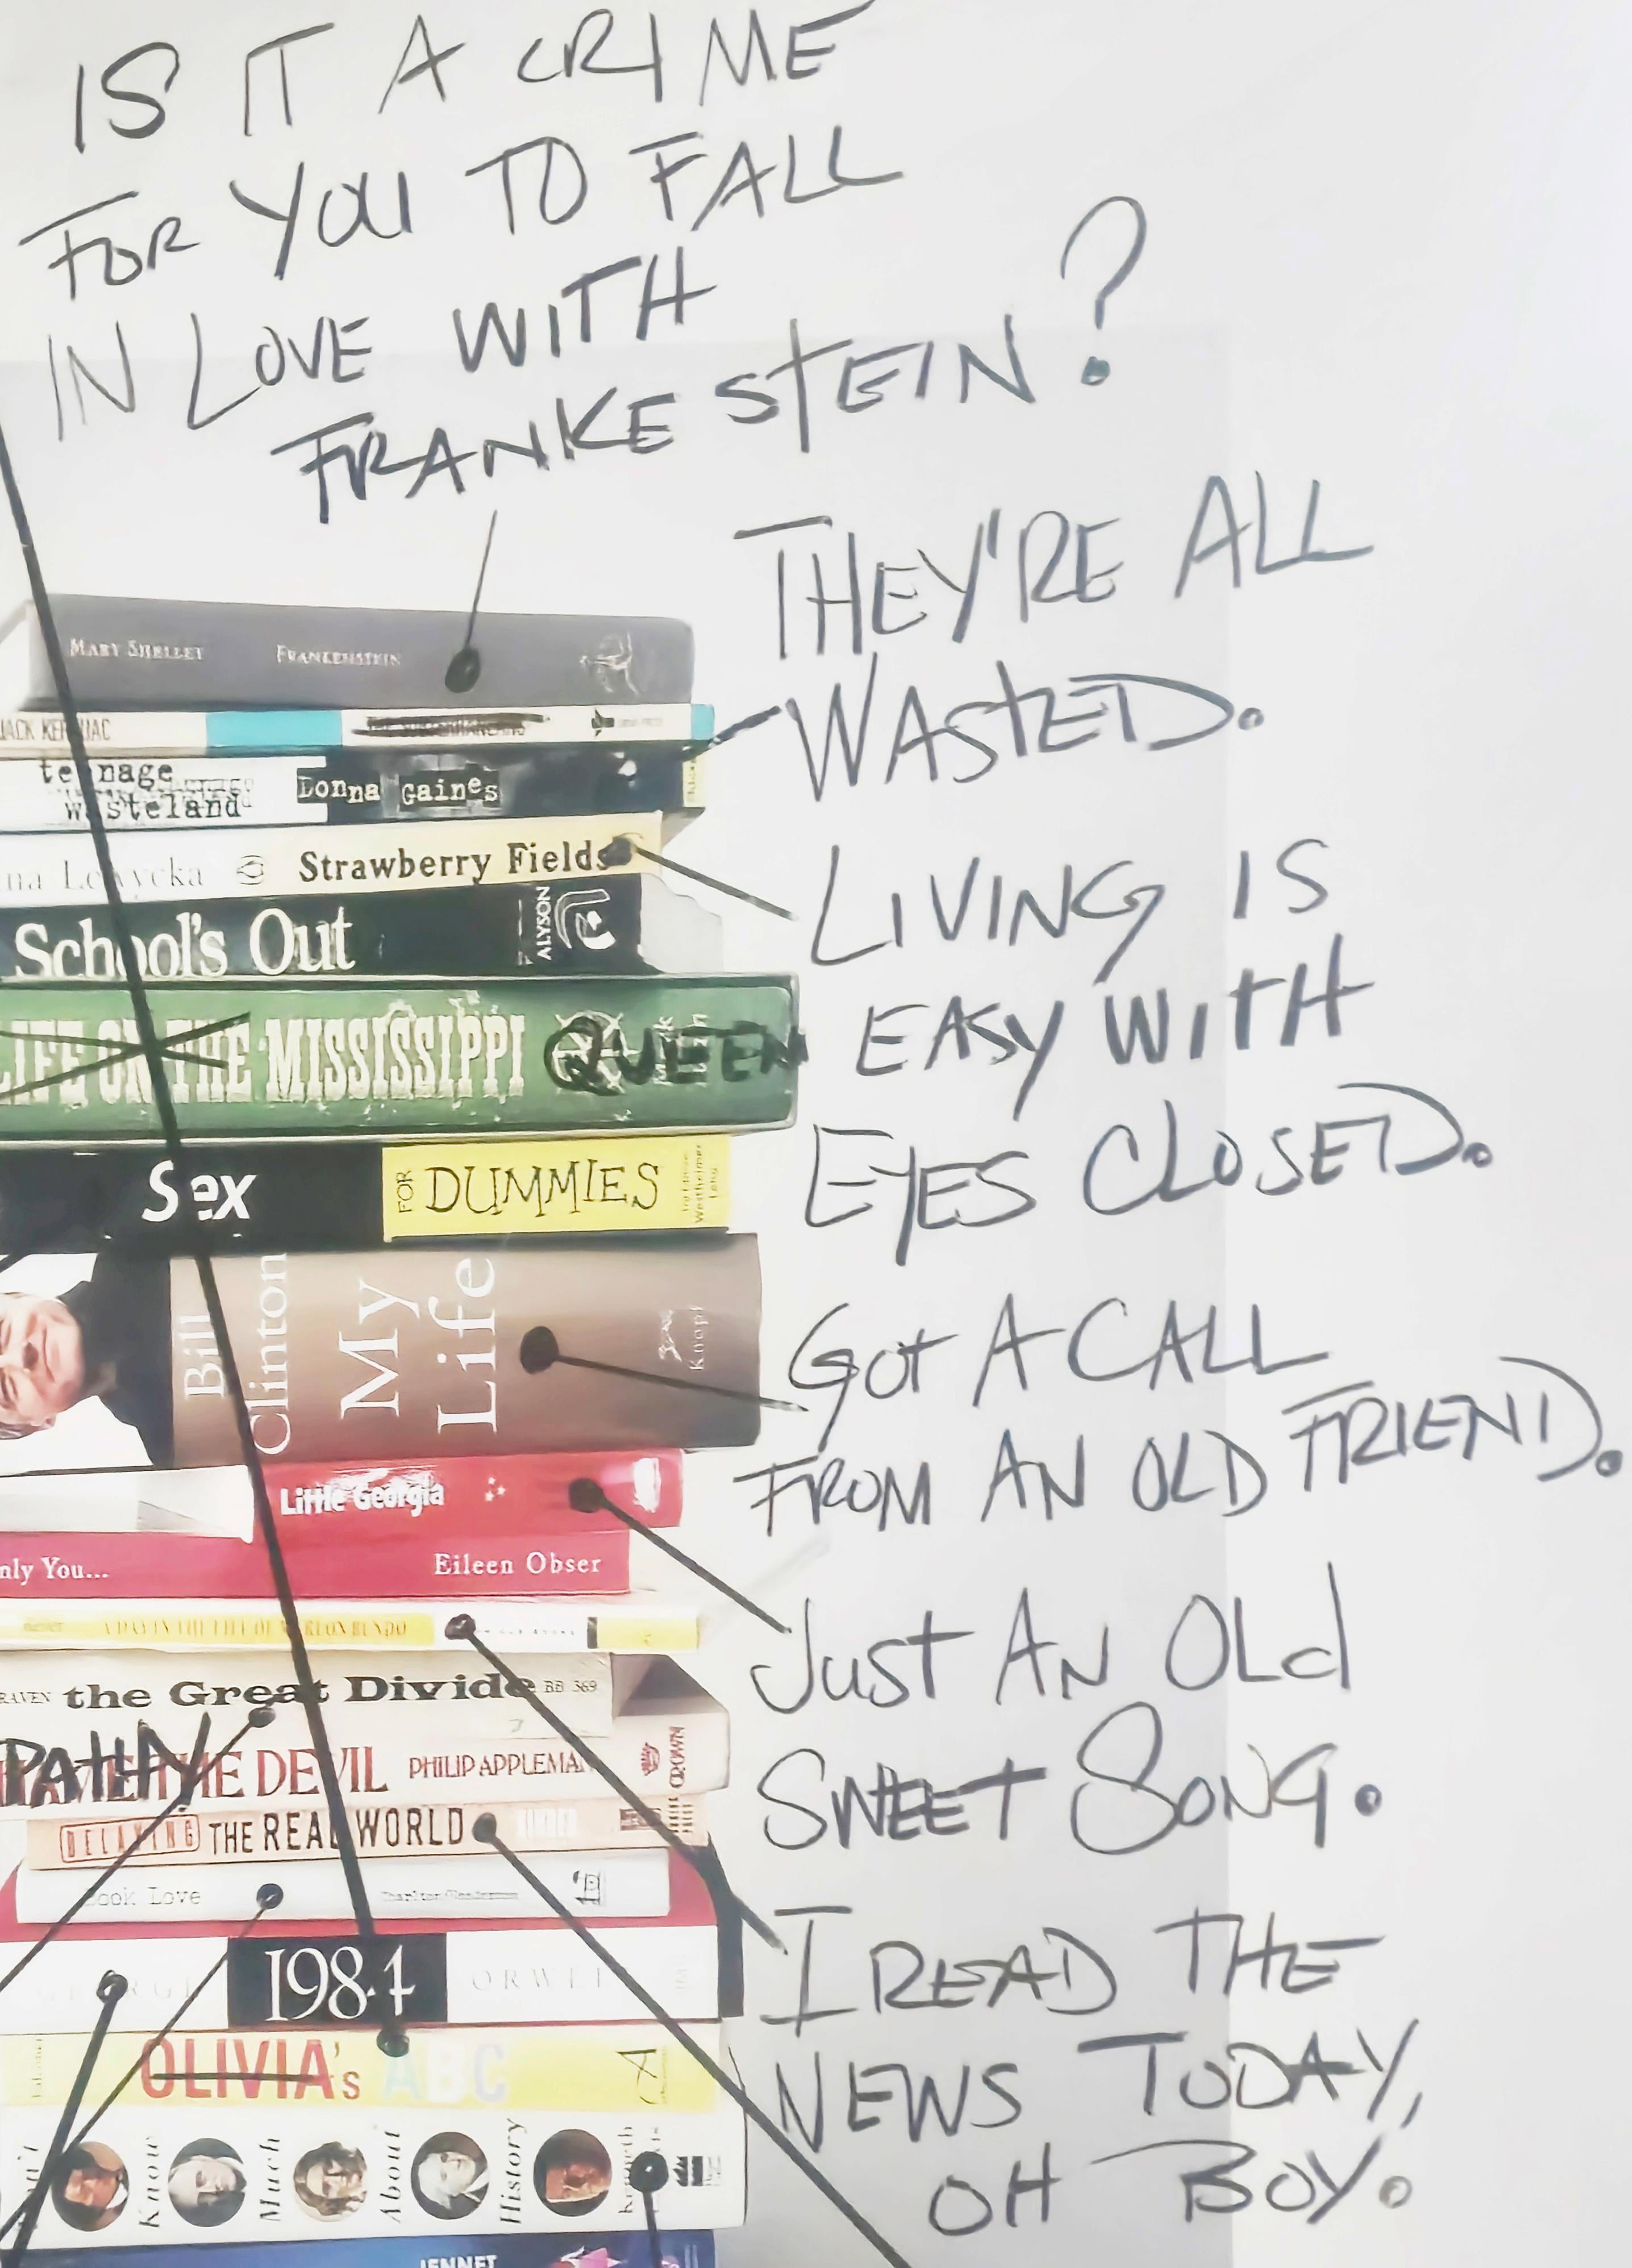 IS IT A CRIME
FOR YOU TO FALL
IN LOVE WITH
FRANKESTEIN?
MARY SHELLEY FRANKENSTEIN
THEY'RE ALL
WASTED.
JACK
teenage
wasteland
Donna Gaines
Strawberry Fields
LIVING IS
EASY WITH
EYES CLOSED.
School's Out
ALYSON
LIFE ON THE MISSISSIPPI QUEEN
Sex FOR DUMMIES
Bill
Clinton
My
Life
Knopf
GOT A CALL
FROM AN OLD FRIEND.
Little Georgia
nly You... Eileen Obser
JUST AN OLd
SWEET SONG.
A DAY IN THE LIFE OF MARLON BUNDO
RAVEN the Great Divide BB 369
PATHY
THE DEVIL PHILIP APPLEMAN CROWN
DELAYING THE REAL WORLD
Book Love
I READ THE
NEWS TODAY,
OH BOY.
GEORGE 1984 ORWELL
OLIVIA's ABC
Know Much About History Kenneth
JENNET